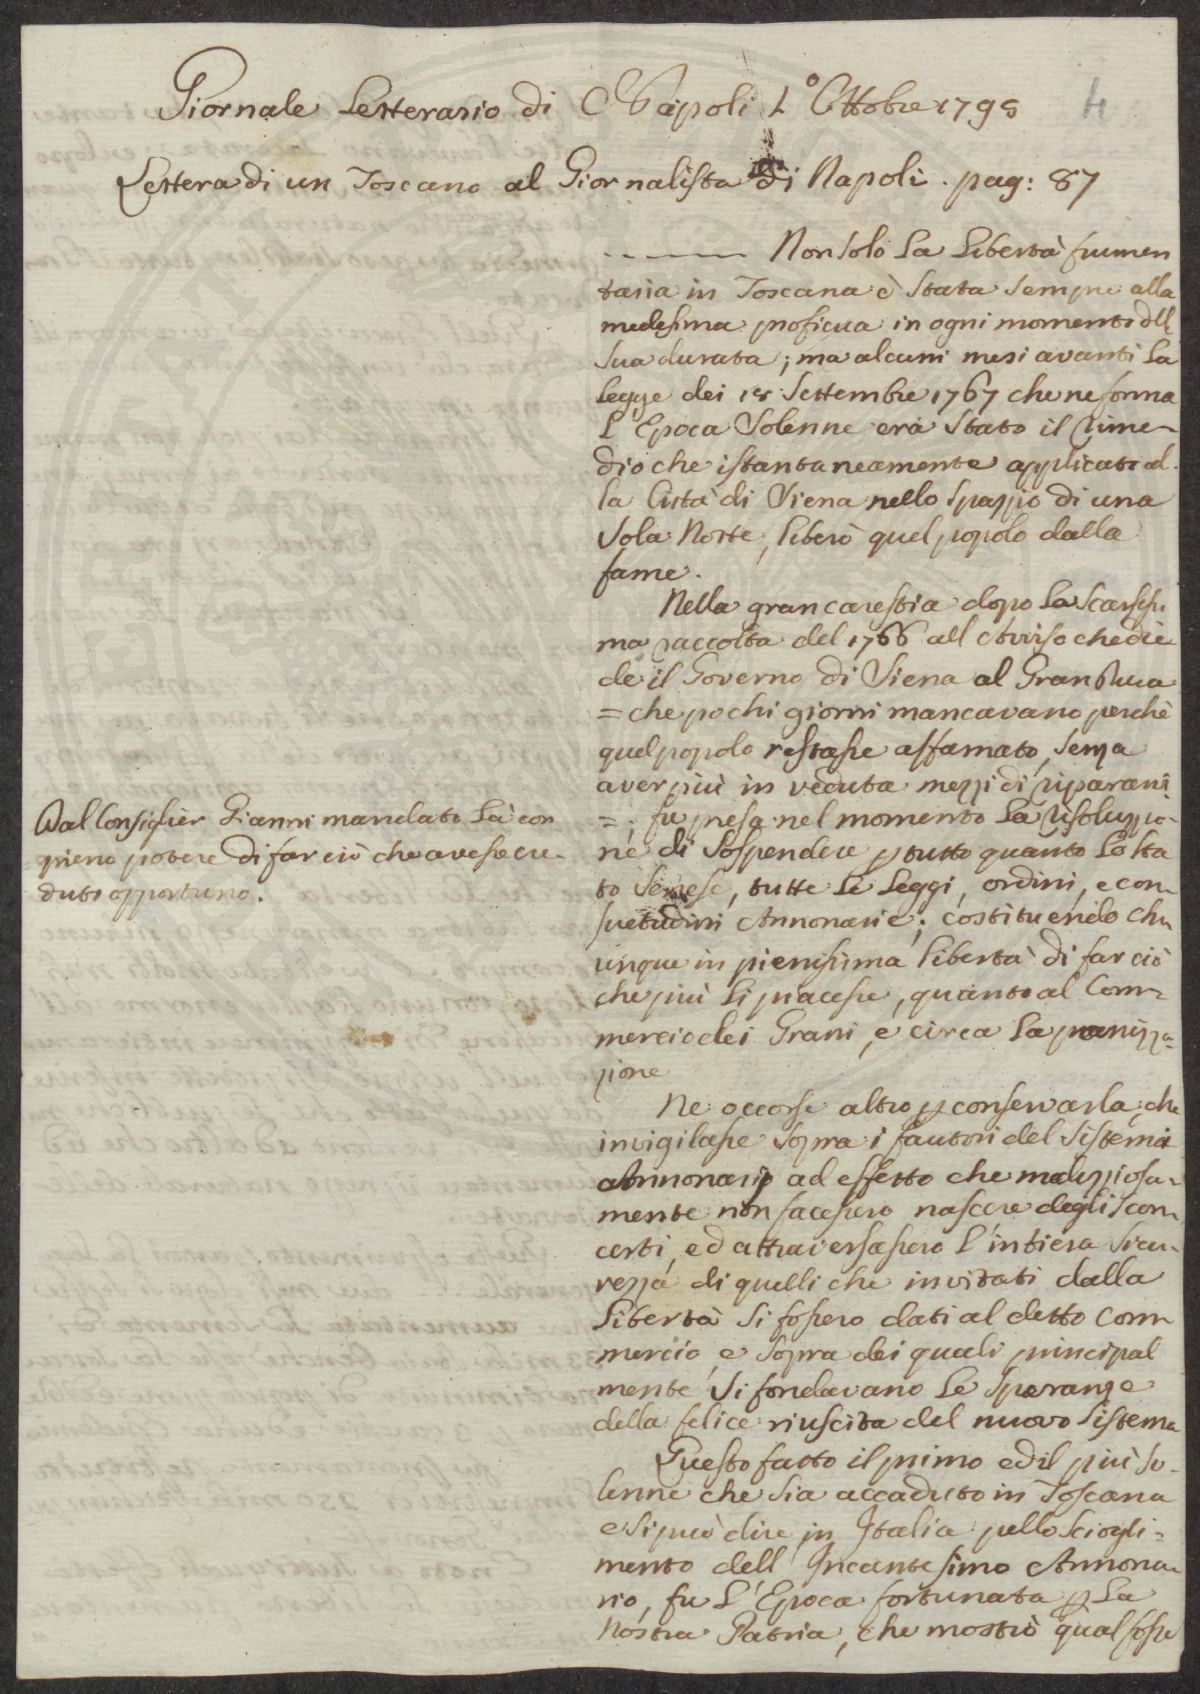 Giornale Letterario di Napoli 1º Ottobre 1795
4
Lettera di un Toscano al Giornalista di Napoli. pag: 87
Non solo la Libertà frumen
taria in Toscana è stata sempre alla
medesima proficua in ogni momento dlla
sua durata; ma alcuni mesi avanti la
Legge dei 18 Settembre 1767 che ne forma
L'Epoca Solenne era stato il rime-
dio che istantaneamente applicato al-
la Città di Siena nello spazzio di una
Sola Notte, liberò quel popolo dalla
fame.
Nella gran carestia dopo la scarsissi-
ma raccolta del 1766 all Avviso che die
de il Governo di Siena al Gran Duca
= che pochi giorni mancavano perchè
quel popolo restasse affamato, senza
aver più in veduta mezzi di ripararvi
= ; fu presa nel momento la risoluzzio-
ne di Sospendere p tutto quanto lo Sta
to Senese, tutte le Leggi, ordini, e con-
suetudini Annonarie; costituendo chi-
unque in pienissima libertà di far ciò
che più li piacesse, quanto al Com-
mercio dei Grani, e circa la panizza-
zione
Dal Consiglier Gianni mandato là con
pieno potere di far ciò che avesse cre-
duto opportuno.
Ne occorse altro p conservarla, che
invigilasse sopra i fautori del Sistema
Annonario ad effetto che maliziosa-
mente non facessero nascere degli scon-
certi, ed attraversassero l'intiera sicu-
rezza di quelli che invitati dalla
libertà si fossero dati al detto Com-
mercio, e sopra dei quali principal
mente si fondavano le speranze
della felice riuscita del nuovo Sistema
Questo fatto il primo ed il più so-
lenne che sia accaduto in Toscana
e si può dire in Italia pello sciogli-
mento dell Incantesimo Annona-
rio, fu L'Epoca fortunata p La
Nostra Patria, che mostrò qual fosse